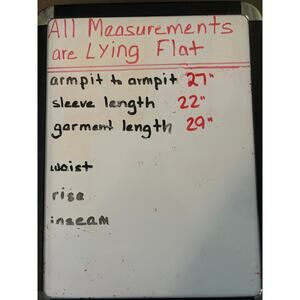 All Measurements
are Lying Flat
armpit to armpit 27"
sleeve length 22"
garment length 29"
waist
rise
inseam